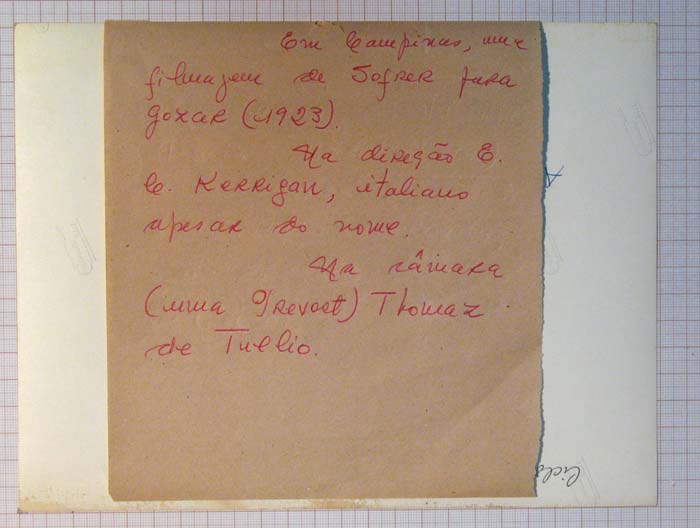 Em Campinas, uma
filmagem de Sofrer para
gozar (1923).
Na direção E.
C. Kerrigan, italiano
apesar do nome.
Na câmara
(uma Prevost) Thomaz
de Tullio.